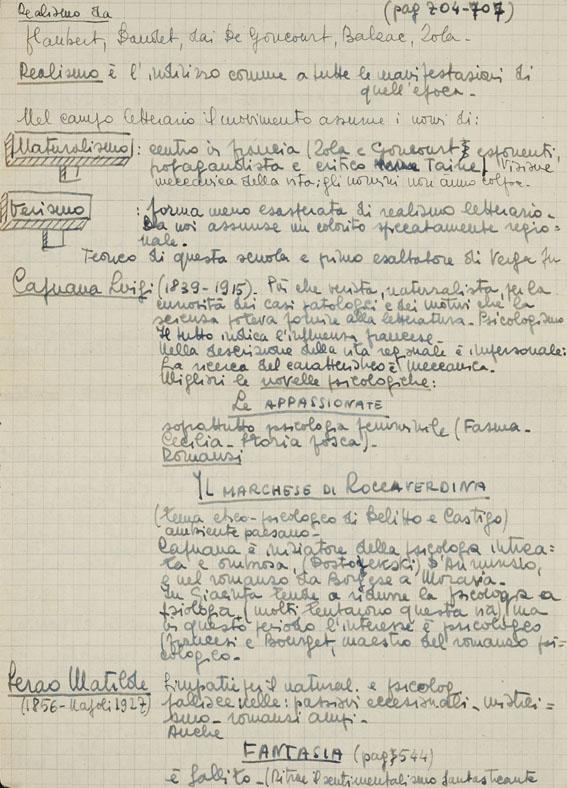 Realismo da (pag 704-707)
Flaubert, Daudet, dai De Goncourt, Balzac, Zola-
Realismo è l'indirizzo comune a tutte le manifestazioni di
quell'epoca.-
Nel campo letterario il movimento assume i nomi di:
Naturalismo: centro in Francia (Zola e Goncourt esponenti,
propagandista e critico Taine). Visione
meccanica della vita; gli uomini non anno colpe.
Verismo: forma meno esasperata di realismo letterario-
Da noi assunse un colorito spiccatamente regio=
nale.-
Teorico di questa scuola e primo esaltatore di Verga fu
Capuana Luigi (1839-1915). Più che verista, naturalista, per la
curiosità dei casi patologici e dei motivi che la
scienza poteva fornire alla letteratura- Psicologismo
Il tutto indica l'influenza francese-
Nella descrizione della vita regionale è impersonale:
La ricerca del caratteristico è meccanica.
Migliori le novelle psicologiche:
Le APPASSIONATE
soprattutto psicologia femminile (Fasma-
Cecilia- Storia fosca)-
Romanzi
IL MARCHESE DI ROCCAVERDINA
(tema etico-psicologico di Delitto e Castigo)
ambiente paesano-
Capuana è iniziatore della psicologia intrica=
ta e ombrosa, (Dostojevski) D'Annunzio,
e nel romanzo da Borgese a Moravia.
In Giacinta tende a ridurre la psicologia a
fisiologia (molti tentarono questa via) ma
in questo periodo l'interesse è psicologico
(francesi e Bourget, maestro del romanzo psi=
cologico-
Serao Matilde Simpatie per il natural. e psicolog.
(1856-Napoli 1927) fallisce nelle: passioni eccezionali- mistici=
smo- romanzi ampi-
Anche
FANTASIA (pag 544)
è fallito- (Ritrae il sentimentalismo fantasticante